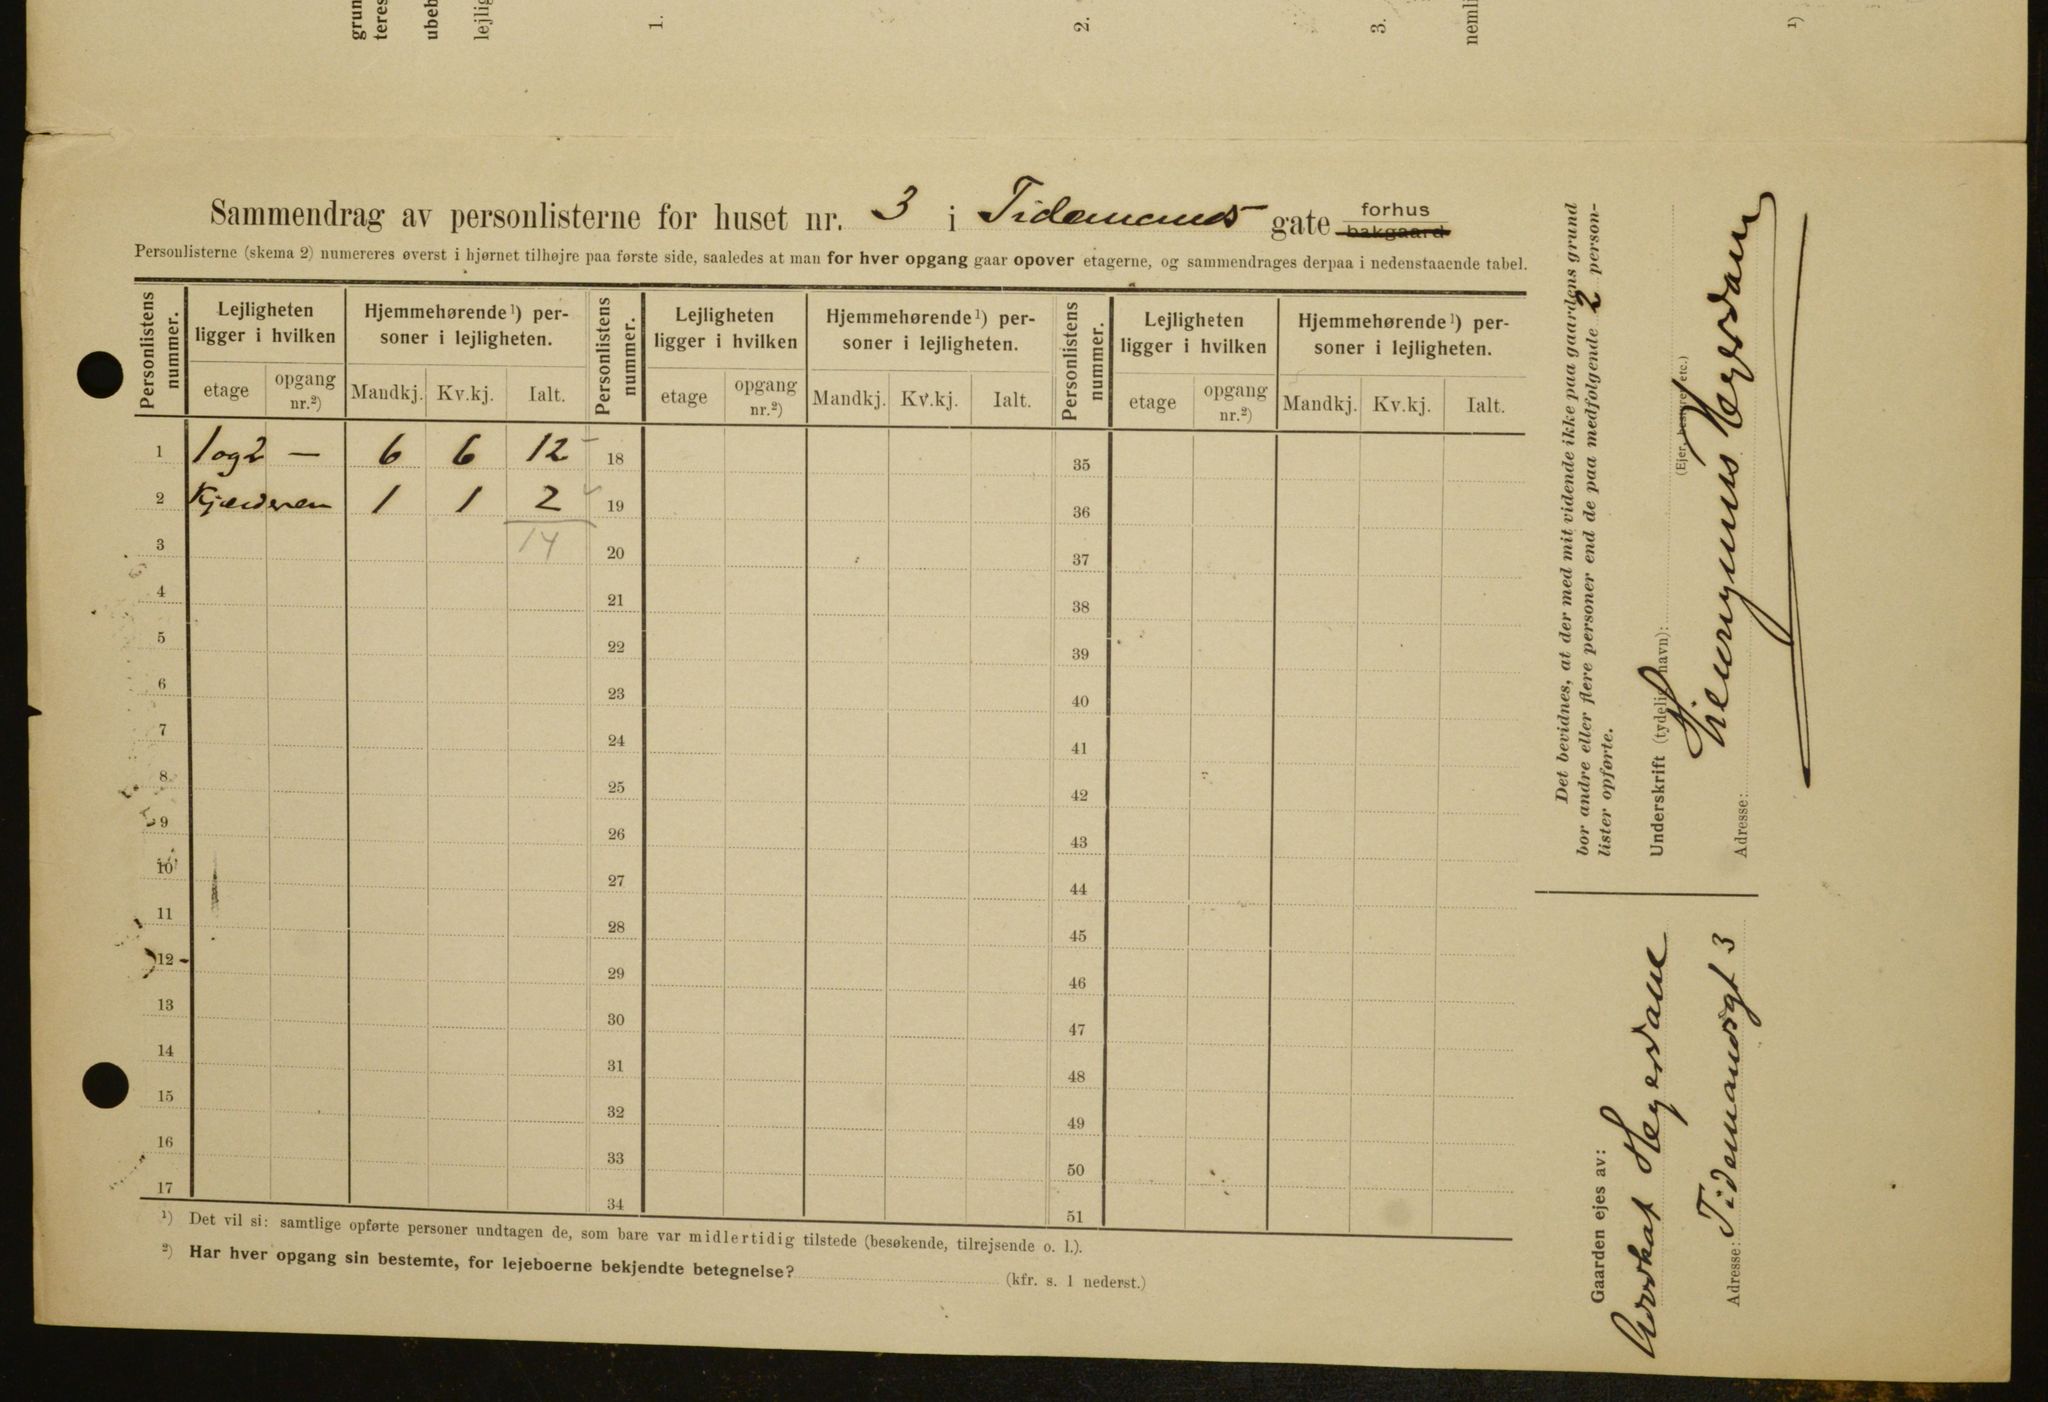 grun
teres
ubeb
lejlig
1.
2.
3.
nemli
1)
Sammendrag av personlisterne for huset nr. 3 i Tidemands gate forhus bakgaard
Personlisterne (skema 2) numereres øverst i hjørnet tilhøjre paa første side, saaledes at man for hver opgang gaar opover etagerne, og sammendrages derpaa i nedenstaaende tabel.
Personlistens nummer. Lejligheten ligger i hvilken Hjemmehørende¹) personer i lejligheten. Personlistens nummer. Lejligheten ligger i hvilken Hjemmehørende¹) personer i lejligheten. Personlistens nummer. Lejligheten ligger i hvilken Hjemmehørende¹) personer i lejligheten.
etage opgang nr.²) Mandkj. Kv.kj. Ialt. etage opgang nr.²) Mandkj. Kv.kj. Ialt. etage opgang nr.²) Mandkj. Kv.kj. Ialt.
1 1og2 — 6 6 12 18 35
2 Kjælderen 1 1 2 19 36
3 14 20 37
4 21 38
5 22 39
6 23 40
7 24 41
8 25 42
9 26 43
10 27 44
11 28 45
12 29 46
13 30 47
14 31 48
15 32 49
16 33 50
17 34 51
¹) Det vil si: samtlige opførte personer undtagen de, som bare var midlertidig tilstede (besøkende, tilrejsende o. l.).
²) Har hver opgang sin bestemte, for lejeboerne bekjendte betegnelse? (kfr. s. 1 nederst.)
Det bevidnes, at der med mit vidende ikke paa gaardens grund
bor andre eller flere personer end de paa medfølgende 2 person-
lister opførte.
Underskrift (tydelig navn):
Hieronymus Heyerdahl
(Ejer, bestyrer etc.)
Adresse:
Gaarden ejes av:
Advokat Heyerdahl
Adresse: Tidemandsgt 3